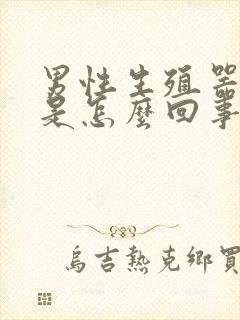 男性生殖器
是怎麼回事
烏吉熱克鄉買